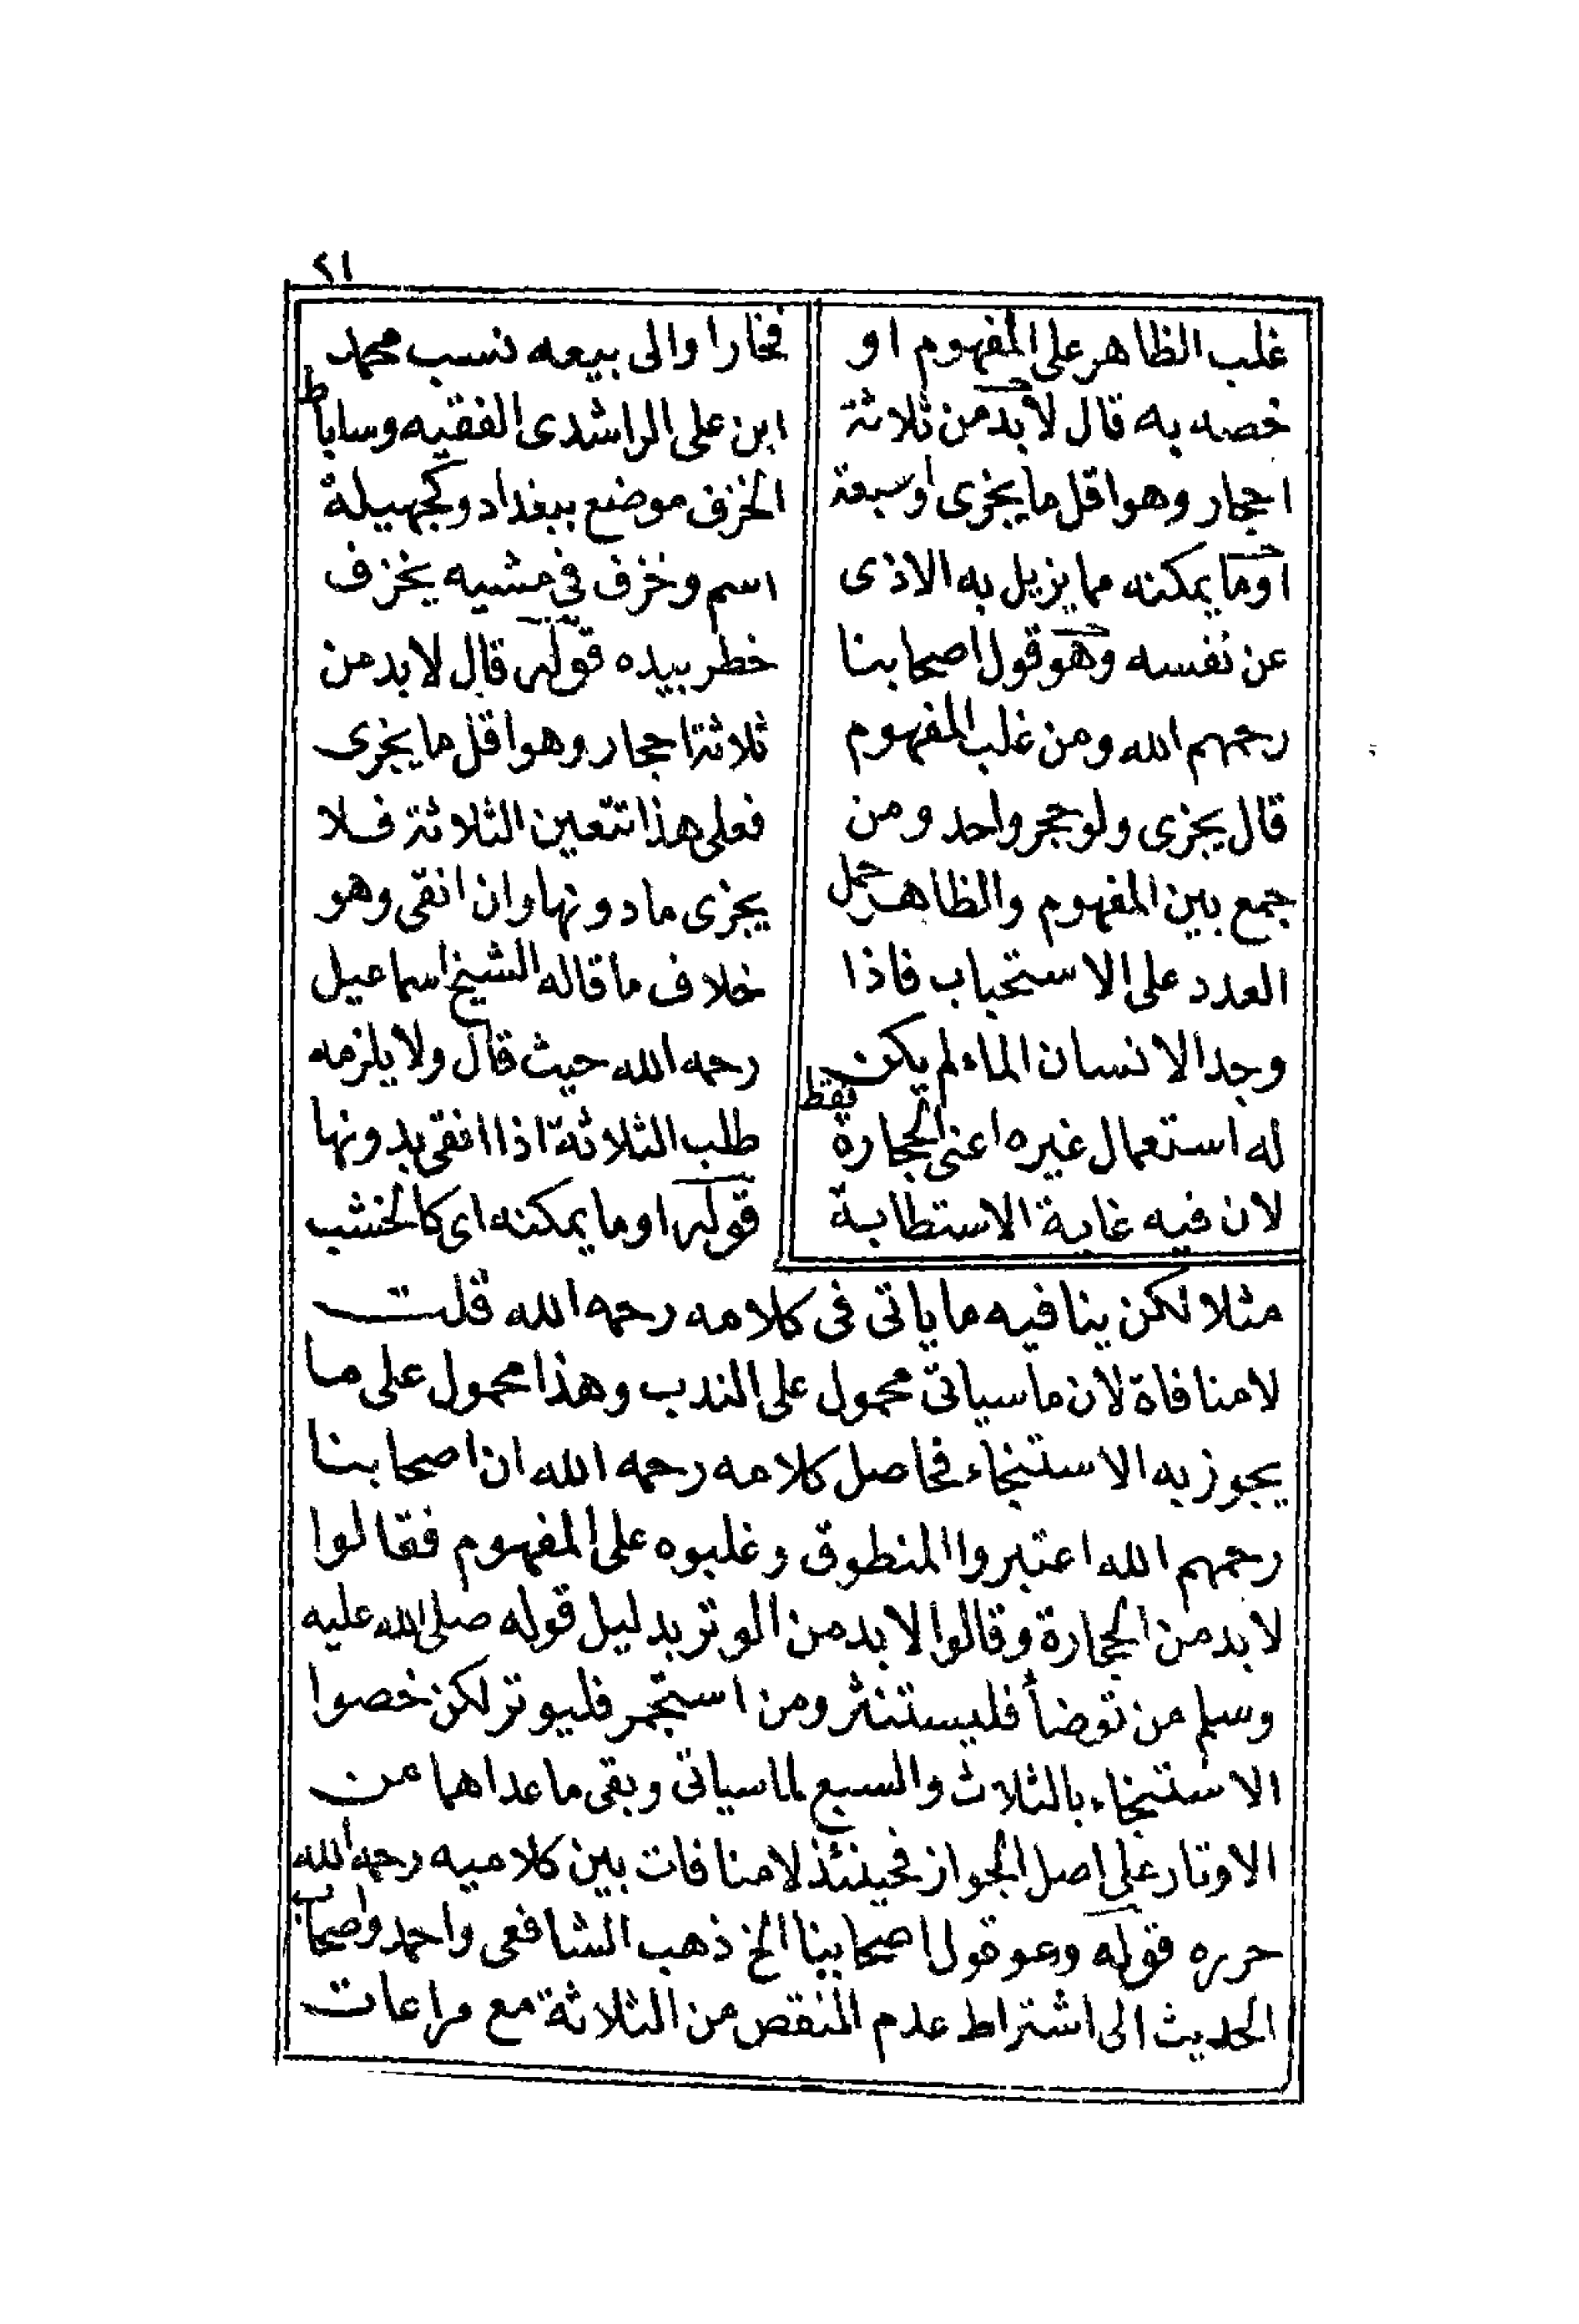 ٢١
غلب الظاهر على المفهوم او
خصه به قال لا بد من ثلاثة
احجار وهو اقل ما يجزى او سبعة
او ما يمكنه مما يزيل به الاذى
عن نفسه وهو قول اصحابنا
رحمهم الله ومن غلب المفهوم
قال يجزى ولو حجر واحد ومن
جمع بين المفهوم والظاهر حمل
العدد على الاستحباب فاذا
وجد الانسان الماء لم يكن
له استعمال غيره اعنى الحجارة فقط
لان فيه غاية الاستطابة
فخارا والى بيعه نسب محمد
ابن على الراشدى الفقيه وساباط
الخزف موضع ببغداد وكجهيلة
اسم وخزف في مشيه يخزف
خطر بيده قوله قال لا بد من
ثلاثة احجار وهو اقل ما يجزى
فعلى هذا تتعين الثلاثة فلا
يجزى ما دونها وان انقى وهو
خلاف ما قاله الشيخ اسماعيل
رحمه الله حيث قال ولا يلزمه
طلب الثلاثة اذا انقى بدونها
قوله او ما يمكنه اى كالخشب
مثلا لكن ينافيه ما ياتى فى كلامه رحمه الله قلت
لا منافاة لان ما سياتى محمول على الندب وهذا محمول على ما
يجوز به الاستنجاء فحاصل كلامه رحمه الله ان اصحابنا
رحمهم الله اعتبروا المنطوق وغلبوه على المفهوم فقالوا
لا بد من الحجارة وقالوا لا بد من الوتر بدليل قوله صلى الله عليه
وسلم من توضأ فليستنثر ومن استجمر فليوتر لكن خصوا
الاستنجاء بالثلاث والسبع لما سياتى وبقى ما عداهما من
الاوتار على اصل الجواز فحينئذ لا منافات بين كلاميه رحمه الله
حرره قوله وهو قول اصحابنا الخ ذهب الشافعى واحمد واصحاب
الحديث الى اشتراط عدم النقص من الثلاثة مع مراعات